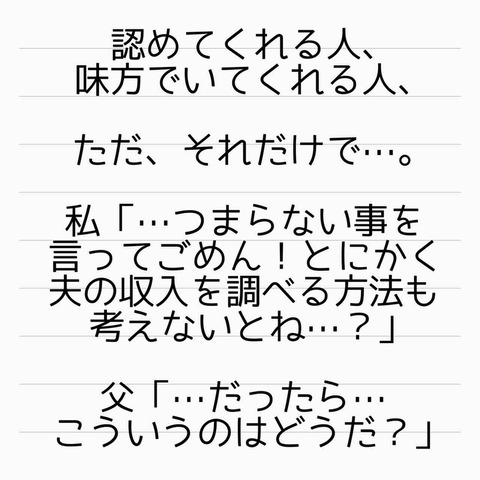 認めてくれる人、
味方でいてくれる人、
ただ、それだけで…。
私「…つまらない事を
言ってごめん！とにかく
夫の収入を調べる方法も
考えないとね…？」
父「…だったら…
こういうのはどうだ？」